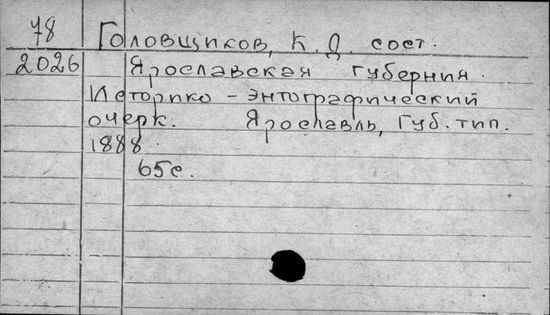 78 Головщиков, К. Д. сост.
2026 Ярославская губерния.
Историко-энтографический
очерк. Ярославль, Губ. тип.
1888.
65с.